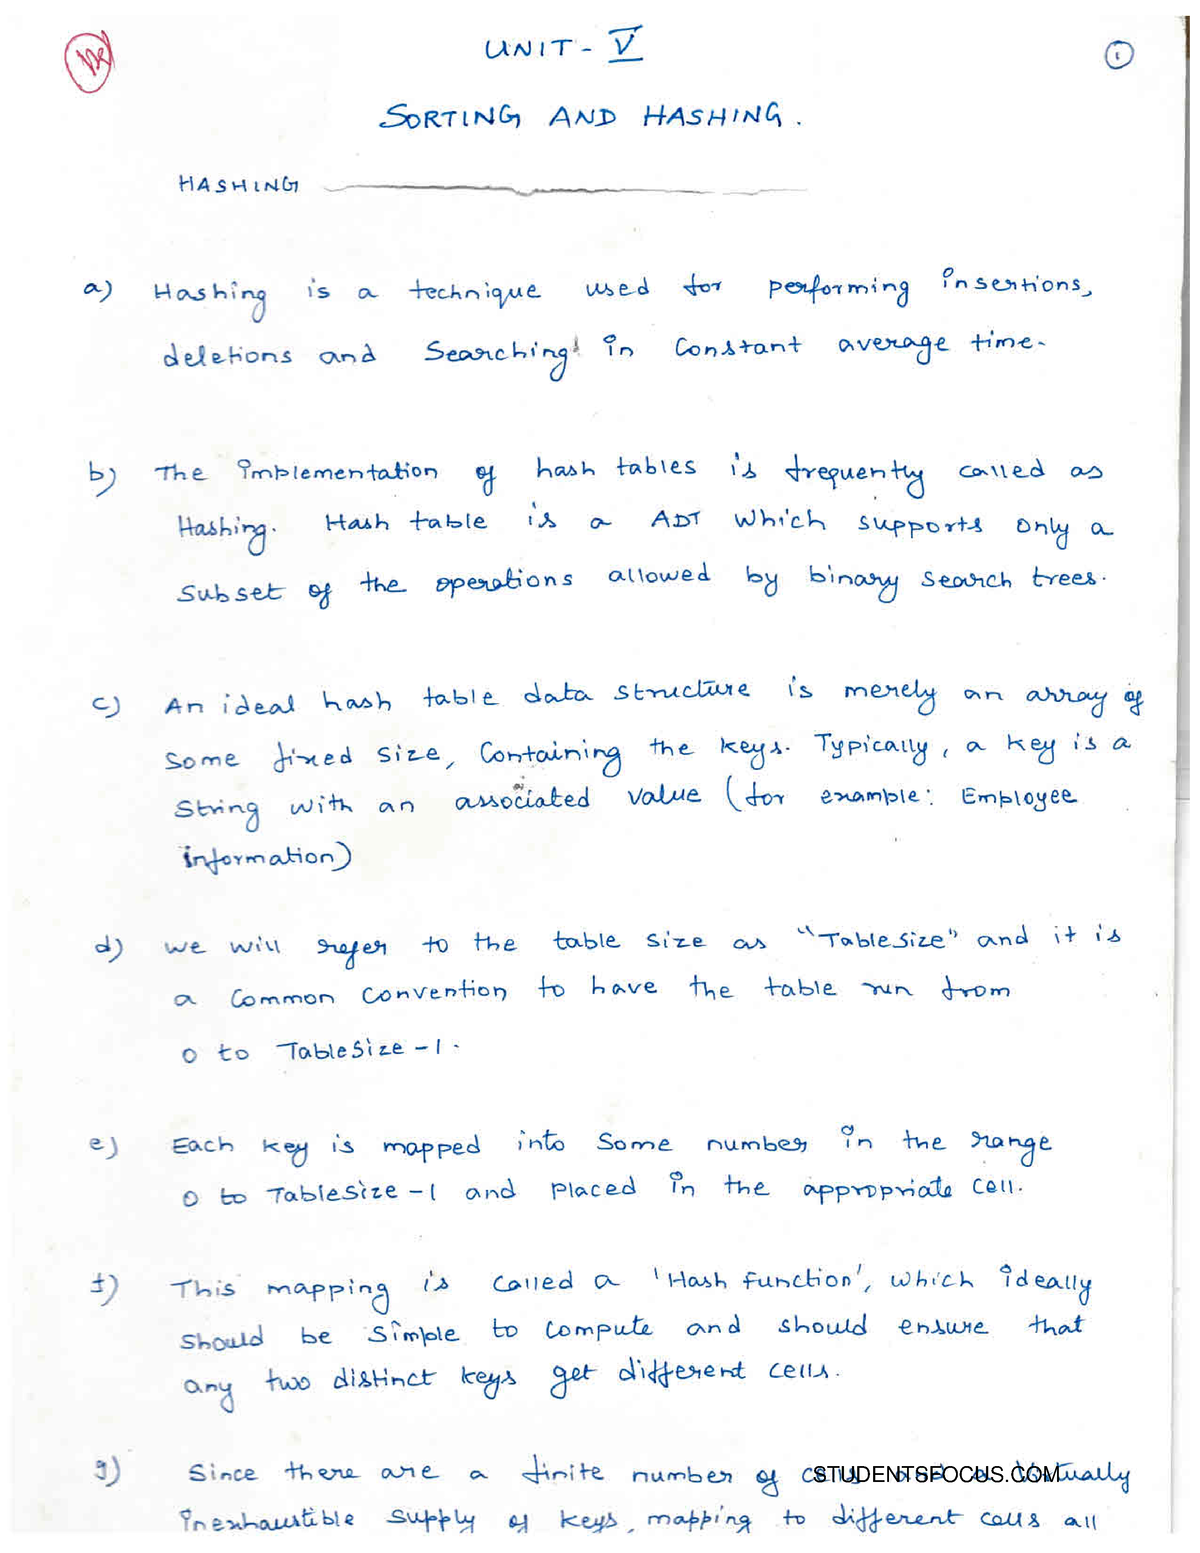 UNIT - V
1
SORTING AND HASHING.
HASHING
a) Hashing is a technique used for performing insertions,
deletions and Searching in Constant average time.
b) The implementation of hash tables is frequently called as
Hashing. Hash table is a ADT which supports only a
Subset of the operations allowed by binary search trees.
c) An ideal hash table data structure is merely an array of
Some fixed size, Containing the keys. Typically, a key is a
String with an associated value (for example: Employee
information)
d) we will refer to the table size as "TableSize" and it is
a Common Convention to have the table run from
0 to TableSize -1.
e) Each key is mapped into Some number in the range
0 to TableSize -1 and placed in the appropriate cell.
f) This mapping is called a 'Hash Function', which ideally
should be simple to compute and should ensure that
any two distinct keys get different cells.
g) Since there are a finite number of STUDENTSFOCUS.COM
inexhaustible supply of keys, mapping to different cells all